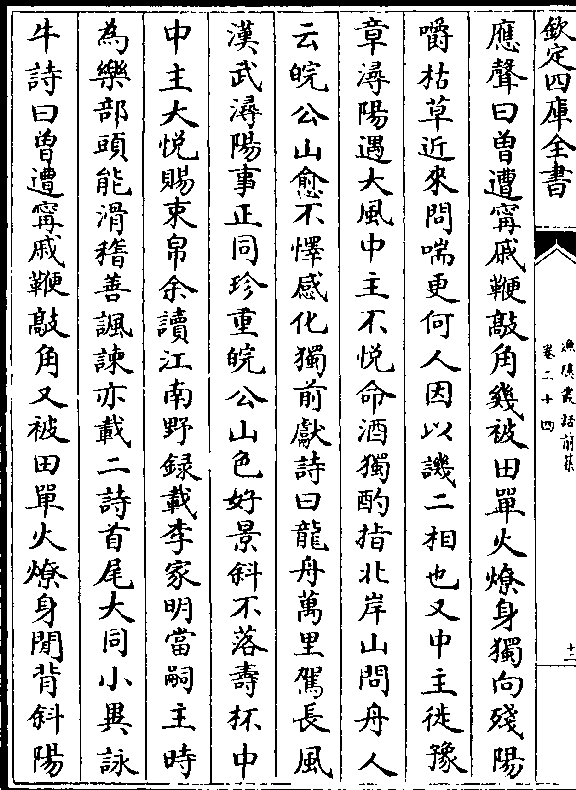 欽定四庫全書
漁隱叢話前集
卷二十四
十二
應聲曰曽遭甯戚鞭敲角幾被田單火燎身獨向殘陽
嚼枯草近來問喘更何人因以譏二相也又中主徙豫
章潯陽遇大風中主不悦命酒獨酌指北岸山問舟人
云皖公山愈不懌感化獨前獻詩曰龍舟萬里駕長風
漢武潯陽事正同珍重皖公山色好景斜不落壽杯中
中主大悦賜束帛余讀江南野録載李家明當嗣主時
為樂部頭能滑稽善諷諫亦載二詩首尾大同小異詠
牛詩曰曽遭甯戚鞭敲角又被田單火燎身閒背斜陽